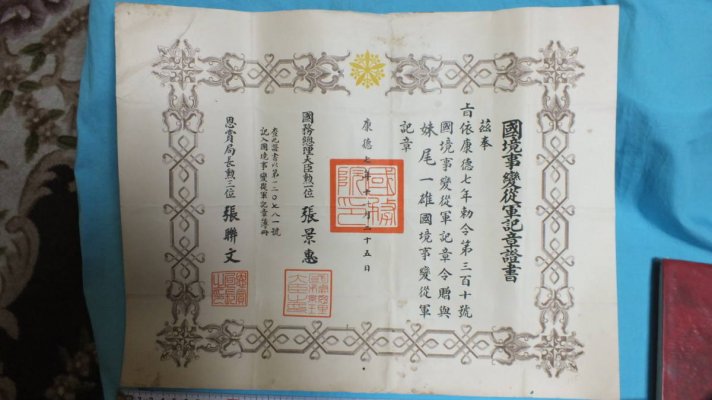 國境事變從軍記章證書
茲奉
旨依康德七年勅令第三百十號
國境事變從軍記章令贈與
妹尾一雄國境事變從軍
記章
康德七年十月二十五日
國務院印
國務總理大臣勲一位 張景惠
查此證書以第一二〇七八一號
記入國境事變從軍記章簿冊
恩賞局長勲三位 張聯文